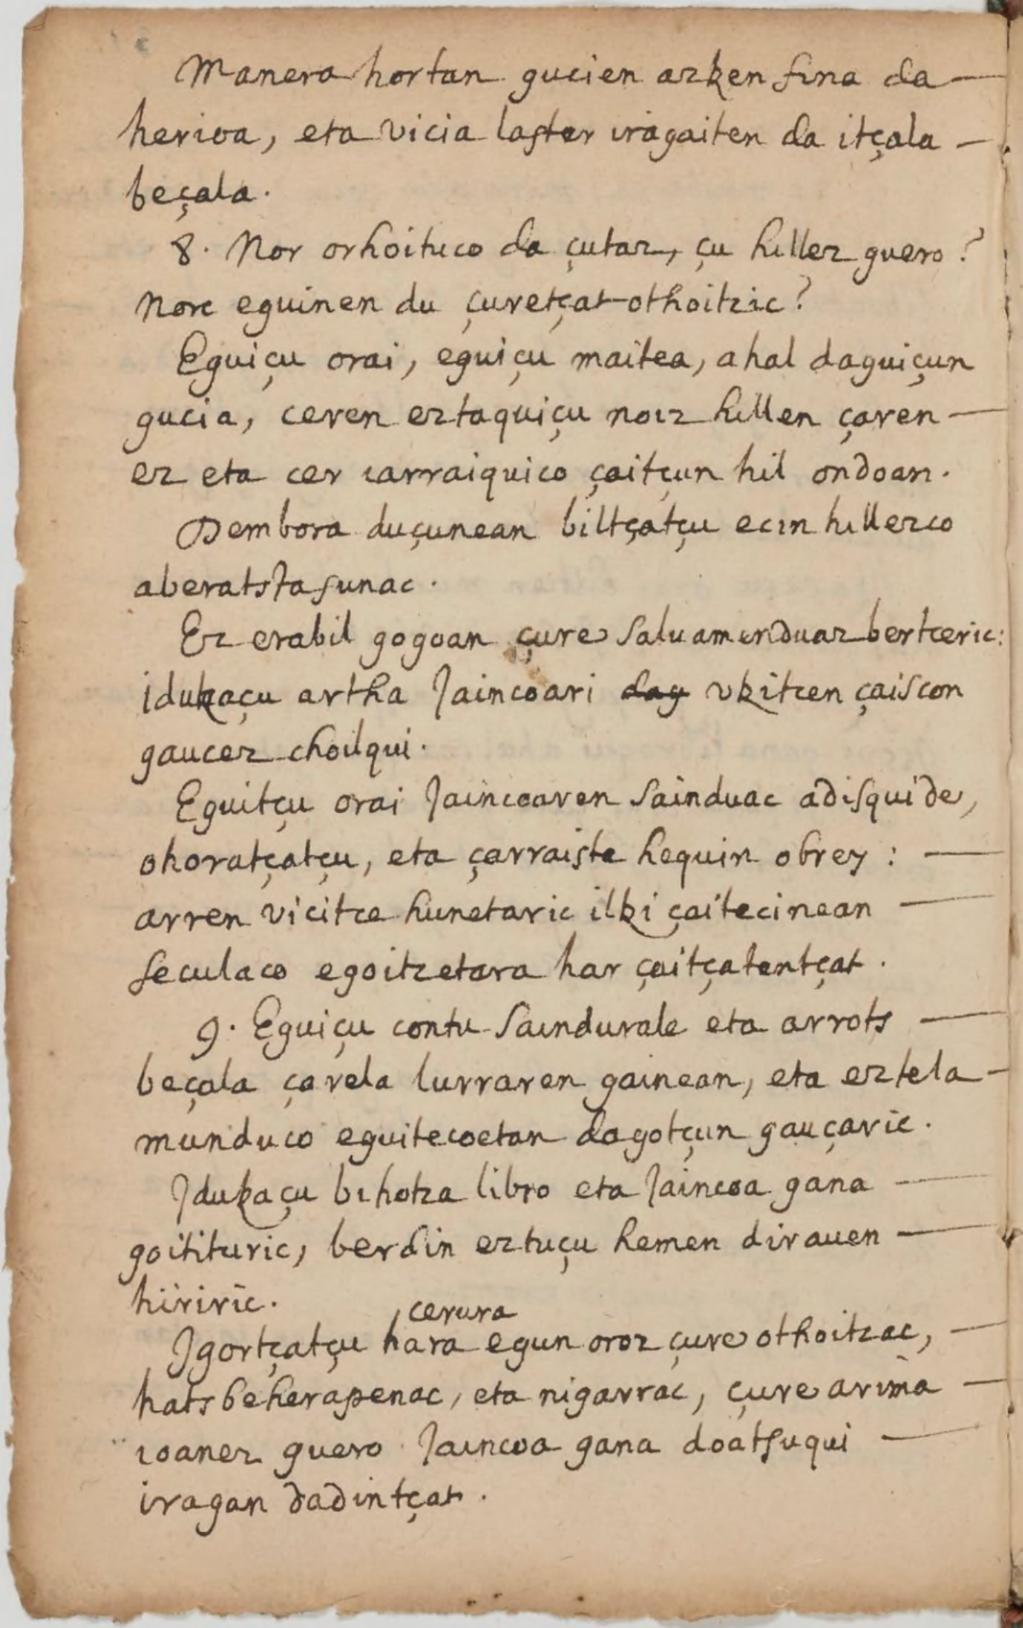 Manera hortan gucien azken fina da —
herioa, eta vicia laster iragaiten da itçala —
beçala.
8. Nor orhoituco da çutaz, çu hillez guero?
Norc eguinen du çuretçat othoitzic?
Eguiçu orai, eguiçu maitea, ahal daguiçun
gucia, ceren eztaquiçu noiz hillen çaren —
ez eta cer iarraiquico çaitçun hil ondoan.
Dembora duçunean biltçatçu ecin hillezco
aberatstasunac.
Ez erabil gogoan çure saluamenduaz bertceric:
idukaçu artha Jaincoari day vkitcen çaiscon
gaucez choilqui.
Eguitçu orai Jaincoaren sainduac adisquide,
ohoratçatçu, eta çarraiste hequin obrey: —
arren vicitce hunetaric ilki çaitecinean —
seculaco egoitzetara har çaitçatentçat.
9. Eguiçu contu saindurale eta arrots —
beçala çarela lurraren gainean, eta eztela —
munduco eguitecoetan dagotçun gauçaric.
Idukaçu bihotza libro eta Jaincoa gana —
goitituric, berdin eztuçu hemen dirauen —
hiriric.
cerura
Igortçatçu hara egun oroz çure othoitzac, —
hatsbeherapenac, eta nigarrac, çure arima —
ioanez guero Jaincoa gana doatsuqui —
iragan dadintçat.